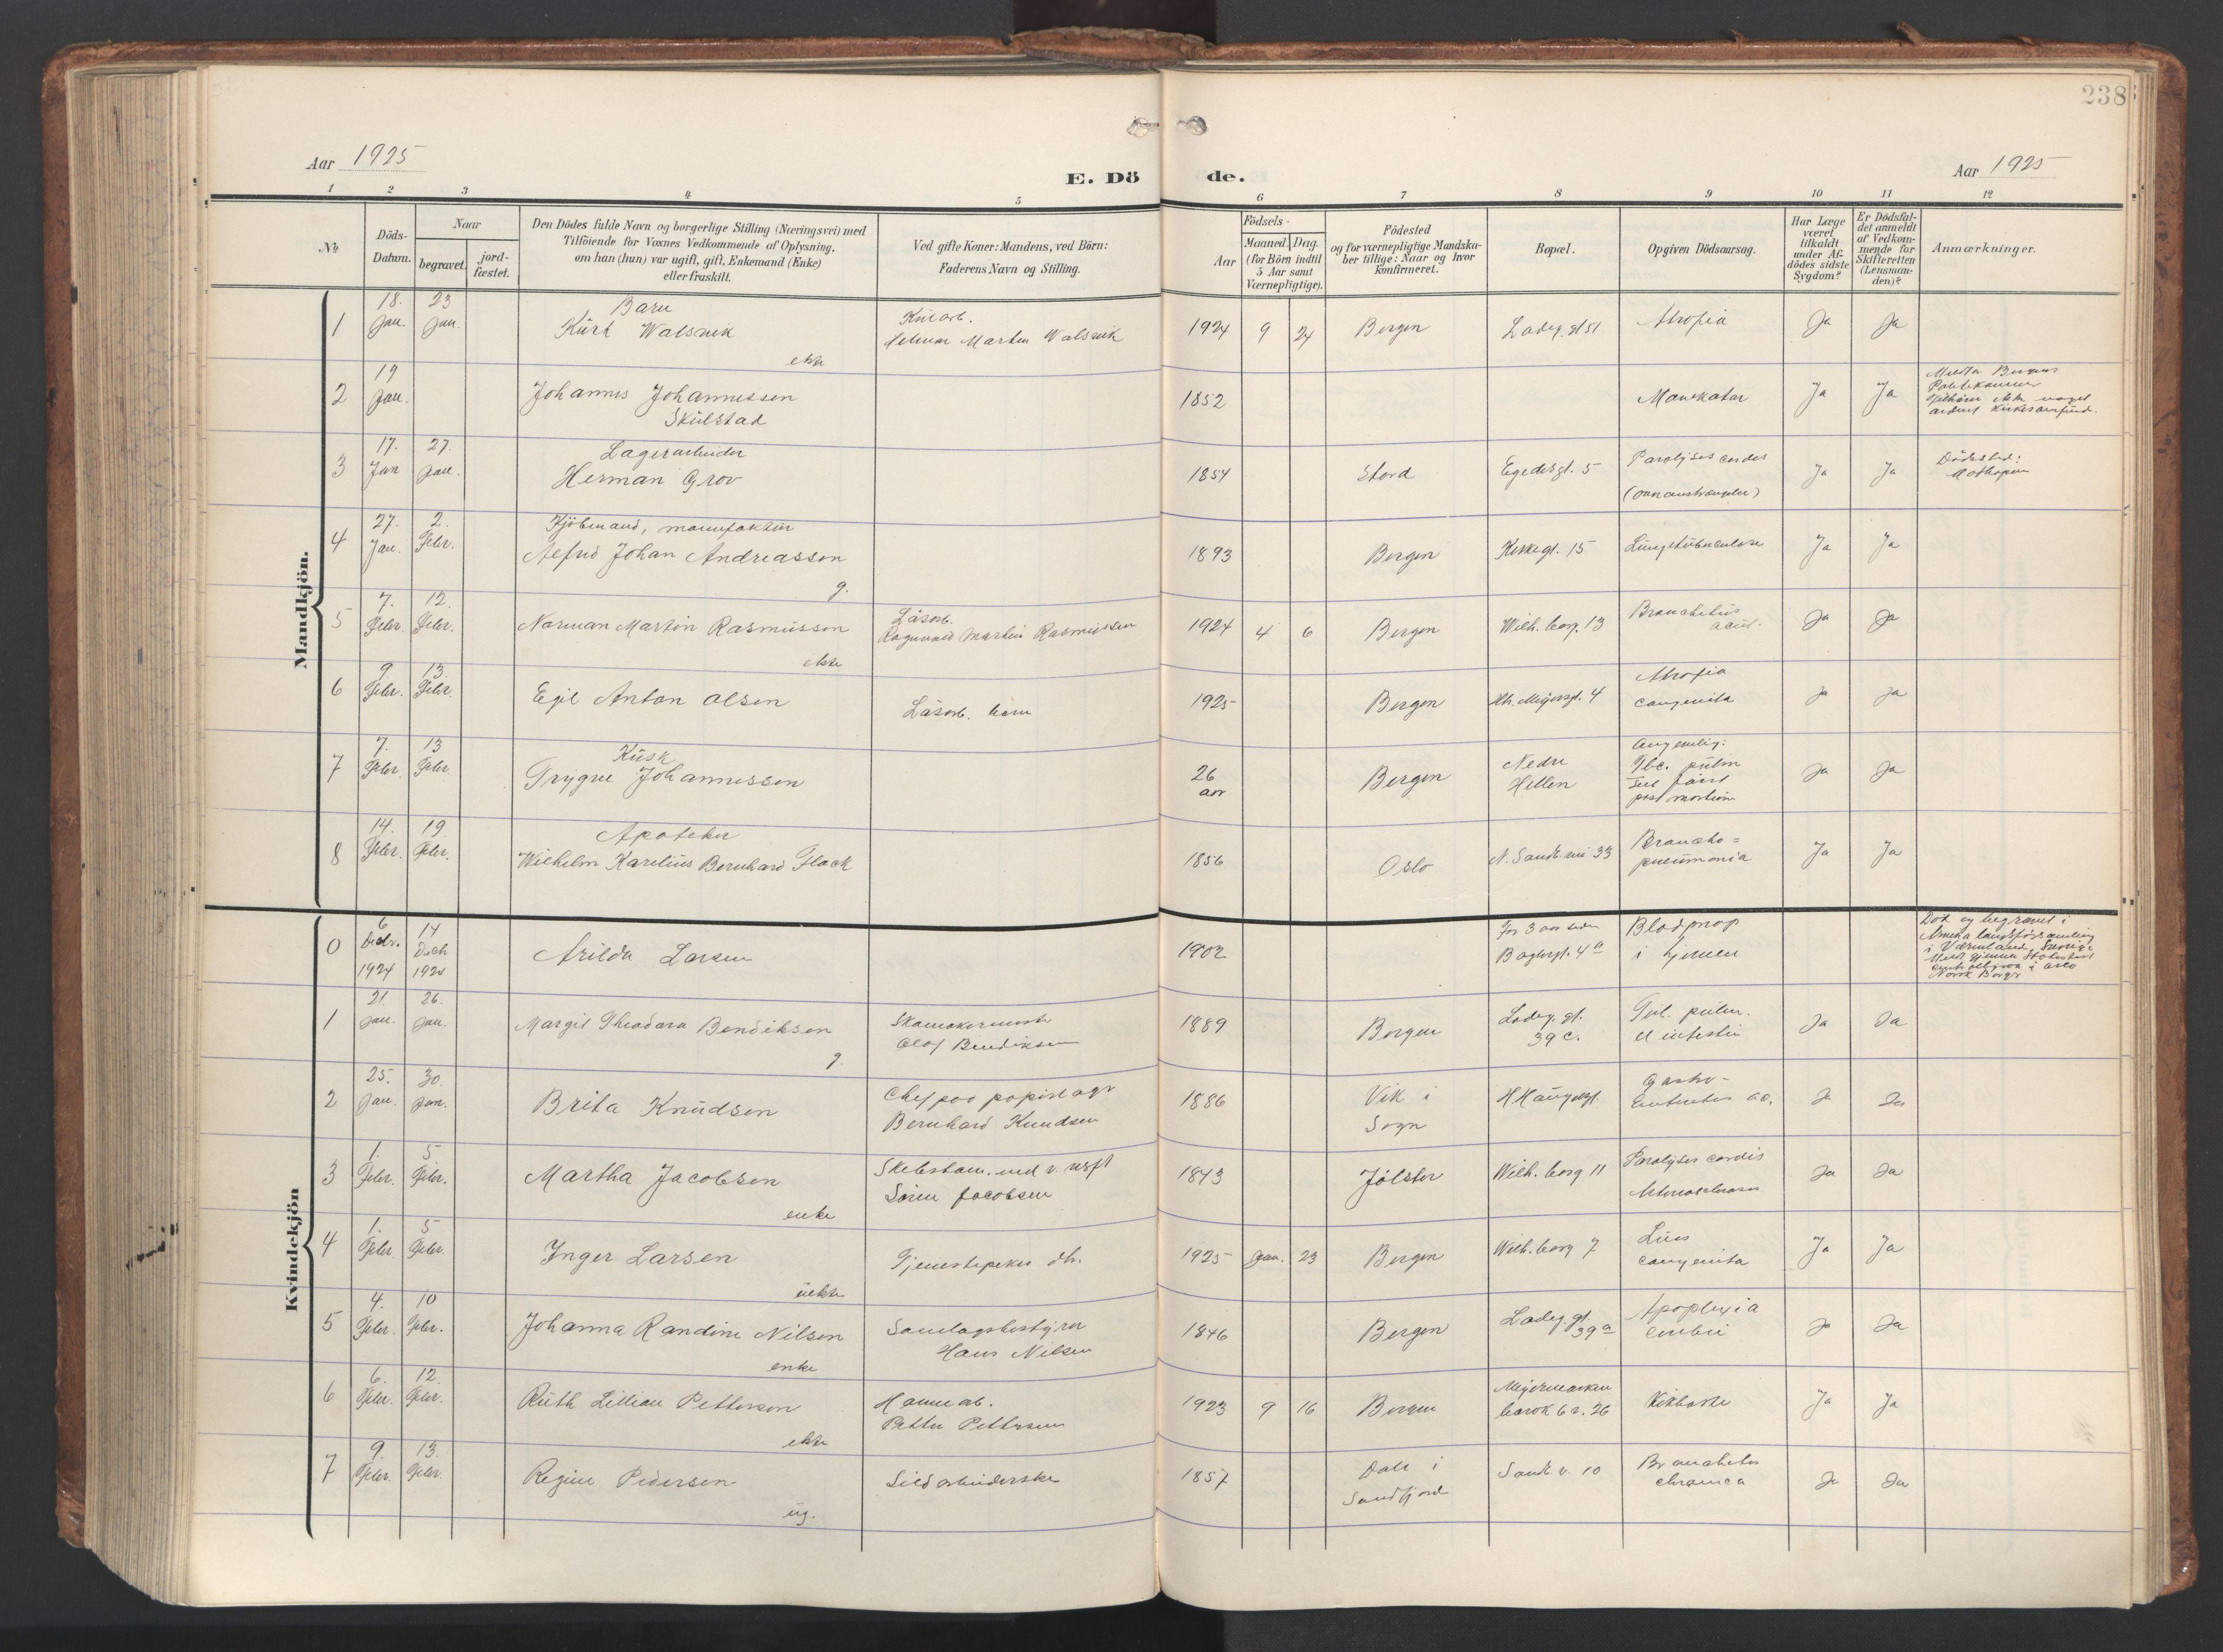 238
Aar 1925
E. Dö de.
Aar 1925
1 2 3 4 5 6 7 8 9 10 11 12
No
Döds-
Datum.
Naar
begravet.
jord-
fæstet.
Den Dödes fulde Navn og borgerlige Stilling (Næringsvei) med
Tilföiende for Voxnes Vedkommende af Oplysning,
om han (hun) var ugift, gift, Enkemand (Enke)
eller fraskilt.
Ved gifte Koner: Mandens, ved Börn:
Faderens Navn og Stilling.
Födsels-
Aar
Maaned. Dag.
(for Börn indtil
5 Aar samt
Værnepligtige).
Födested
og for værnepligtige Mandska-
ber tillige: Naar og hvor
konfirmeret.
Bopæl.
Opgiven Dödsaarsag.
Har Læge
været
tilkaldt
under Af-
dödes sidste
Sygdom?
Er Dödsfal-
det anmeldt
af Vedkom-
mende for
Skifteretten
(Lensman-
den)?
Anmærkninger.
Mandkjön.
1 18. Jan. 23 Jan.
Barn
Kurt Walsvik
ekte
Marten Walsvik
1924 9 24 Bergen Ladeg. gt 51 Atrofia Ja Ja
2 19 Jan.
Johannes Johannessen
Skulstad
1852 Mavekatar Ja Ja
3 17. Jan 27. Jan.
Lagerarbeider
Herman Grov
1854 Stord Egedesgt. 5 Paralyses cordis
Ja Ja Dödssted:
4 27. Jan. 2. Febr.
Kjöbmand, manufaktur
Alfred Johan Andreassen
g.
1893 Bergen Kirkegt. 15 Lungetuberculose Ja Ja
5 7. Febr. 12. Febr.
Norman Martin Rasmussen
ekte
Løsarb.
Ragnvald Martin Rasmussen
1924 4 6 Bergen Wilh. borg. 13 Bronchitis
acut. Ja Ja
6 9. Febr. 13. Febr.
Egil Anton Olsen
Løsarb. barn
1925 Bergen Hh. Meyersgt. 4 Atrofia
congenita Ja Ja
7 7. Febr. 13 Febr.
Kusk
Trygve Johannessen
26
aar
Bergen Nedre
Hellen
Tbc. pulm
post mortem
Ja Ja
8 14. Febr. 19. Febr.
Apoteker
Wilhelm Karelius Bernhard Flock
1856 Oslo N. Sandk. vei 33 Broncho=
pneumonia Ja Ja
Kvindekjön
0 6 Decbr. 1924 14 Decbr 1924
Arilda Larsen
1902 For 3 aar siden
Baglergt. 4a
Blodprop
i hjernen
Død og begravet i
landsförsamling
i Värmland, Sverige
1 21. Jan. 26. Jan.
Margit Theodora Bendiksen
g.
Skomakermester
Olaf Bendiksen
1889 Bergen Ladeg. gt.
39 c.
Tub. pulm.
et intestin Ja Ja
2 25. Jan. 30. Jan.
Brita Knudsen
Chef paa papirlager
Bernhard Knudsen
1886 Vik i
Sogn
H. Haugesgt. Gastro-
Enteritis ac. Ja Ja
3 1. Febr. 5. Febr.
Martha Jacobsen
enke
Skibstøm. med v. verft
Sören Jacobsen
1843 Jölster Wilh. borg 11 Paralyses cordis
Arteriosclerose Ja Ja
4 1. Febr. 5 Febr.
Inger Larsen
uekte
Tjenestepikes dtr.
1925 Jan. 23 Bergen Wilh. borg 7 Lues
congenita Ja Ja
5 4. Febr. 10 Febr.
Johanna Randine Nilsen
enke
Samlagsbestyrer
Hans Nilsen
1846 Bergen Ladeg. gt.
39 a
Apoplexia
cerebri Ja Ja
6 6. Febr. 12. Febr.
Ruth Lillian Pettersen
ekte
Havnearb.
Petter Pettersen
1923 9 16 Bergen Meyermarken
barak 6 v. 26 Kikhoste Ja Ja
7 9. Febr. 13. Febr.
Regine Pedersen
ug.
Sildarbeiderske
1857 Dale i
Søndfjord
Sandk. v. 10 Bronchitis
chronica Ja Ja